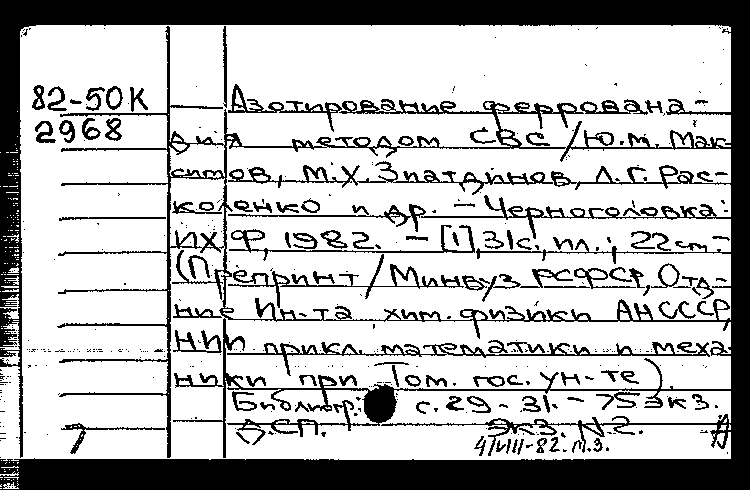 82-50К
2968
Азотирование феррована-
дия методом СВС / Ю.М. Мак-
симов, М.Х. Зиатдинов, Л.Г. Рас-
коленко и др. - Черноголовка:
ИХФ, 1982. - [1], 31с., ил.; 22см. -
(Препринт / Минвуз РСФСР, Отд-
ние Ин-та хим. физики АН СССР,
НИИ прикл. математики и меха-
ники при Том. гос. ун-те).
Библиогр.: с. 29-31. - 75экз.
ДСП. Экз. N2.
4/VIII-82. М.З.